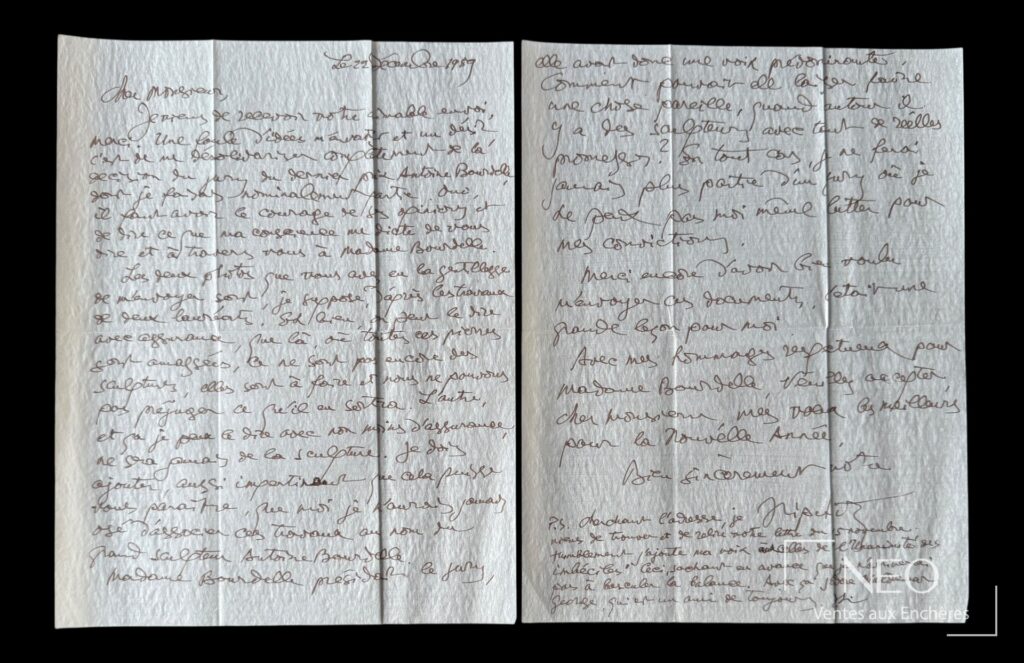 Le 22 décembre 1959
Cher Monsieur,
Je viens de recevoir votre aimable envoi,
merci. Une foule d'idées et un désir
c'est de me désolidariser complètement de la
décision du jury du dernier prix Antoine Bourdelle
dont je faisais nominalement partie. Oui,
il faut avoir le courage de ses opinions et
de dire ce que ma conscience me dicte de vous
dire et à travers vous à Madame Bourdelle.
Les deux photos que vous avez eu la gentillesse
de m'envoyer sont, je suppose, d'après les travaux
de deux lauréats. Eh bien, on peut le dire
avec assurance, que là, où toutes ces pierres
sont amassées, ça ne sont pas encore des
sculptures, elles sont à faire et nous ne pouvons
pas préjuger ce qu'il en sortira. L'autre,
et ça je peux le dire avec non moins d'assurance,
ne sera jamais de la sculpture. Je dois
ajouter aussi impertinent que cela puisse
vous paraître, que moi je n'aurais jamais
osé d'associer ces travaux au nom du
grand sculpteur Antoine Bourdelle.
Madame Bourdelle présidait le jury,
elle avait donc une voix prédominante.
Comment pouvait-elle laisser faire
une chose pareille, quand autour il
y a des sculpteurs avec tant de réelles
promesses? En tout cas, je ne ferai
jamais plus partie d'un jury où je
ne peux pas moi même lutter pour
mes convictions.
Merci encore d'avoir bien voulu
m'envoyer ces documents, c'était une
grande leçon pour moi.
Avec mes hommages respectueux pour
Madame Bourdelle veuillez accepter,
cher Monsieur, mes vœux les meilleurs
pour la Nouvelle Année.
Bien sincèrement votre
Lipchitz
P.S. cherchant l'adresse, je
viens de trouver et de relire votre lettre du
Humblement j'ajoute ma voix à celles de l'Unanimité des
imbéciles! Ceci sachant en avance
pas à basculer la balance. Avec ça
George qui est un ami de toujours
NEO
Ventes aux Enchères